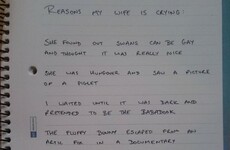 REASONS MY WIFE IS CRYING:
SHE FOUND OUT SWANS CAN BE GAY
AND THOUGHT IT WAS REALLY NICE
SHE WAS HUNGOVER AND SAW A PICTURE
OF A PIGLET
I WAITED UNTIL IT WAS DARK AND
PRETENDED TO BE THE BABADOOK
THE FLUFFY BUNNY ESCAPED FROM AN
ARCTIC FOX IN A DOCUMENTARY